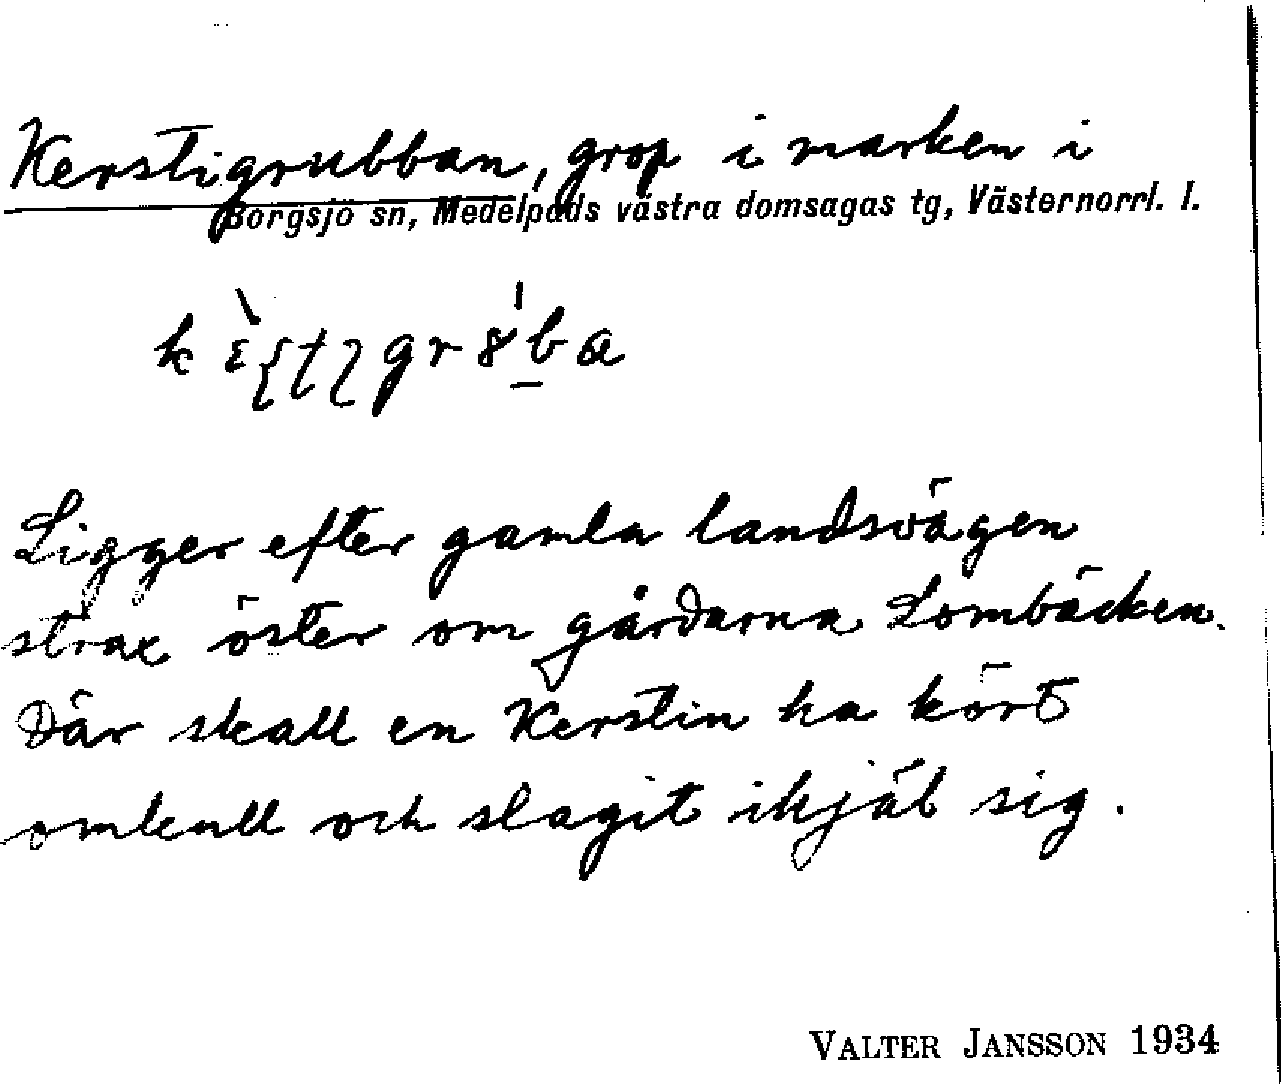 Kerstigrubban, grop i marken i
Borgsjö sn, Medelpads västra domsagas tg, Västernorrl. l.
Ligger efter gamla landsvägen
strax öster om gårdarna Lombäcken.
Där skall en Kerstin ha kört
omkull och slagit ihjäl sig.
VALTER JANSSON 1934